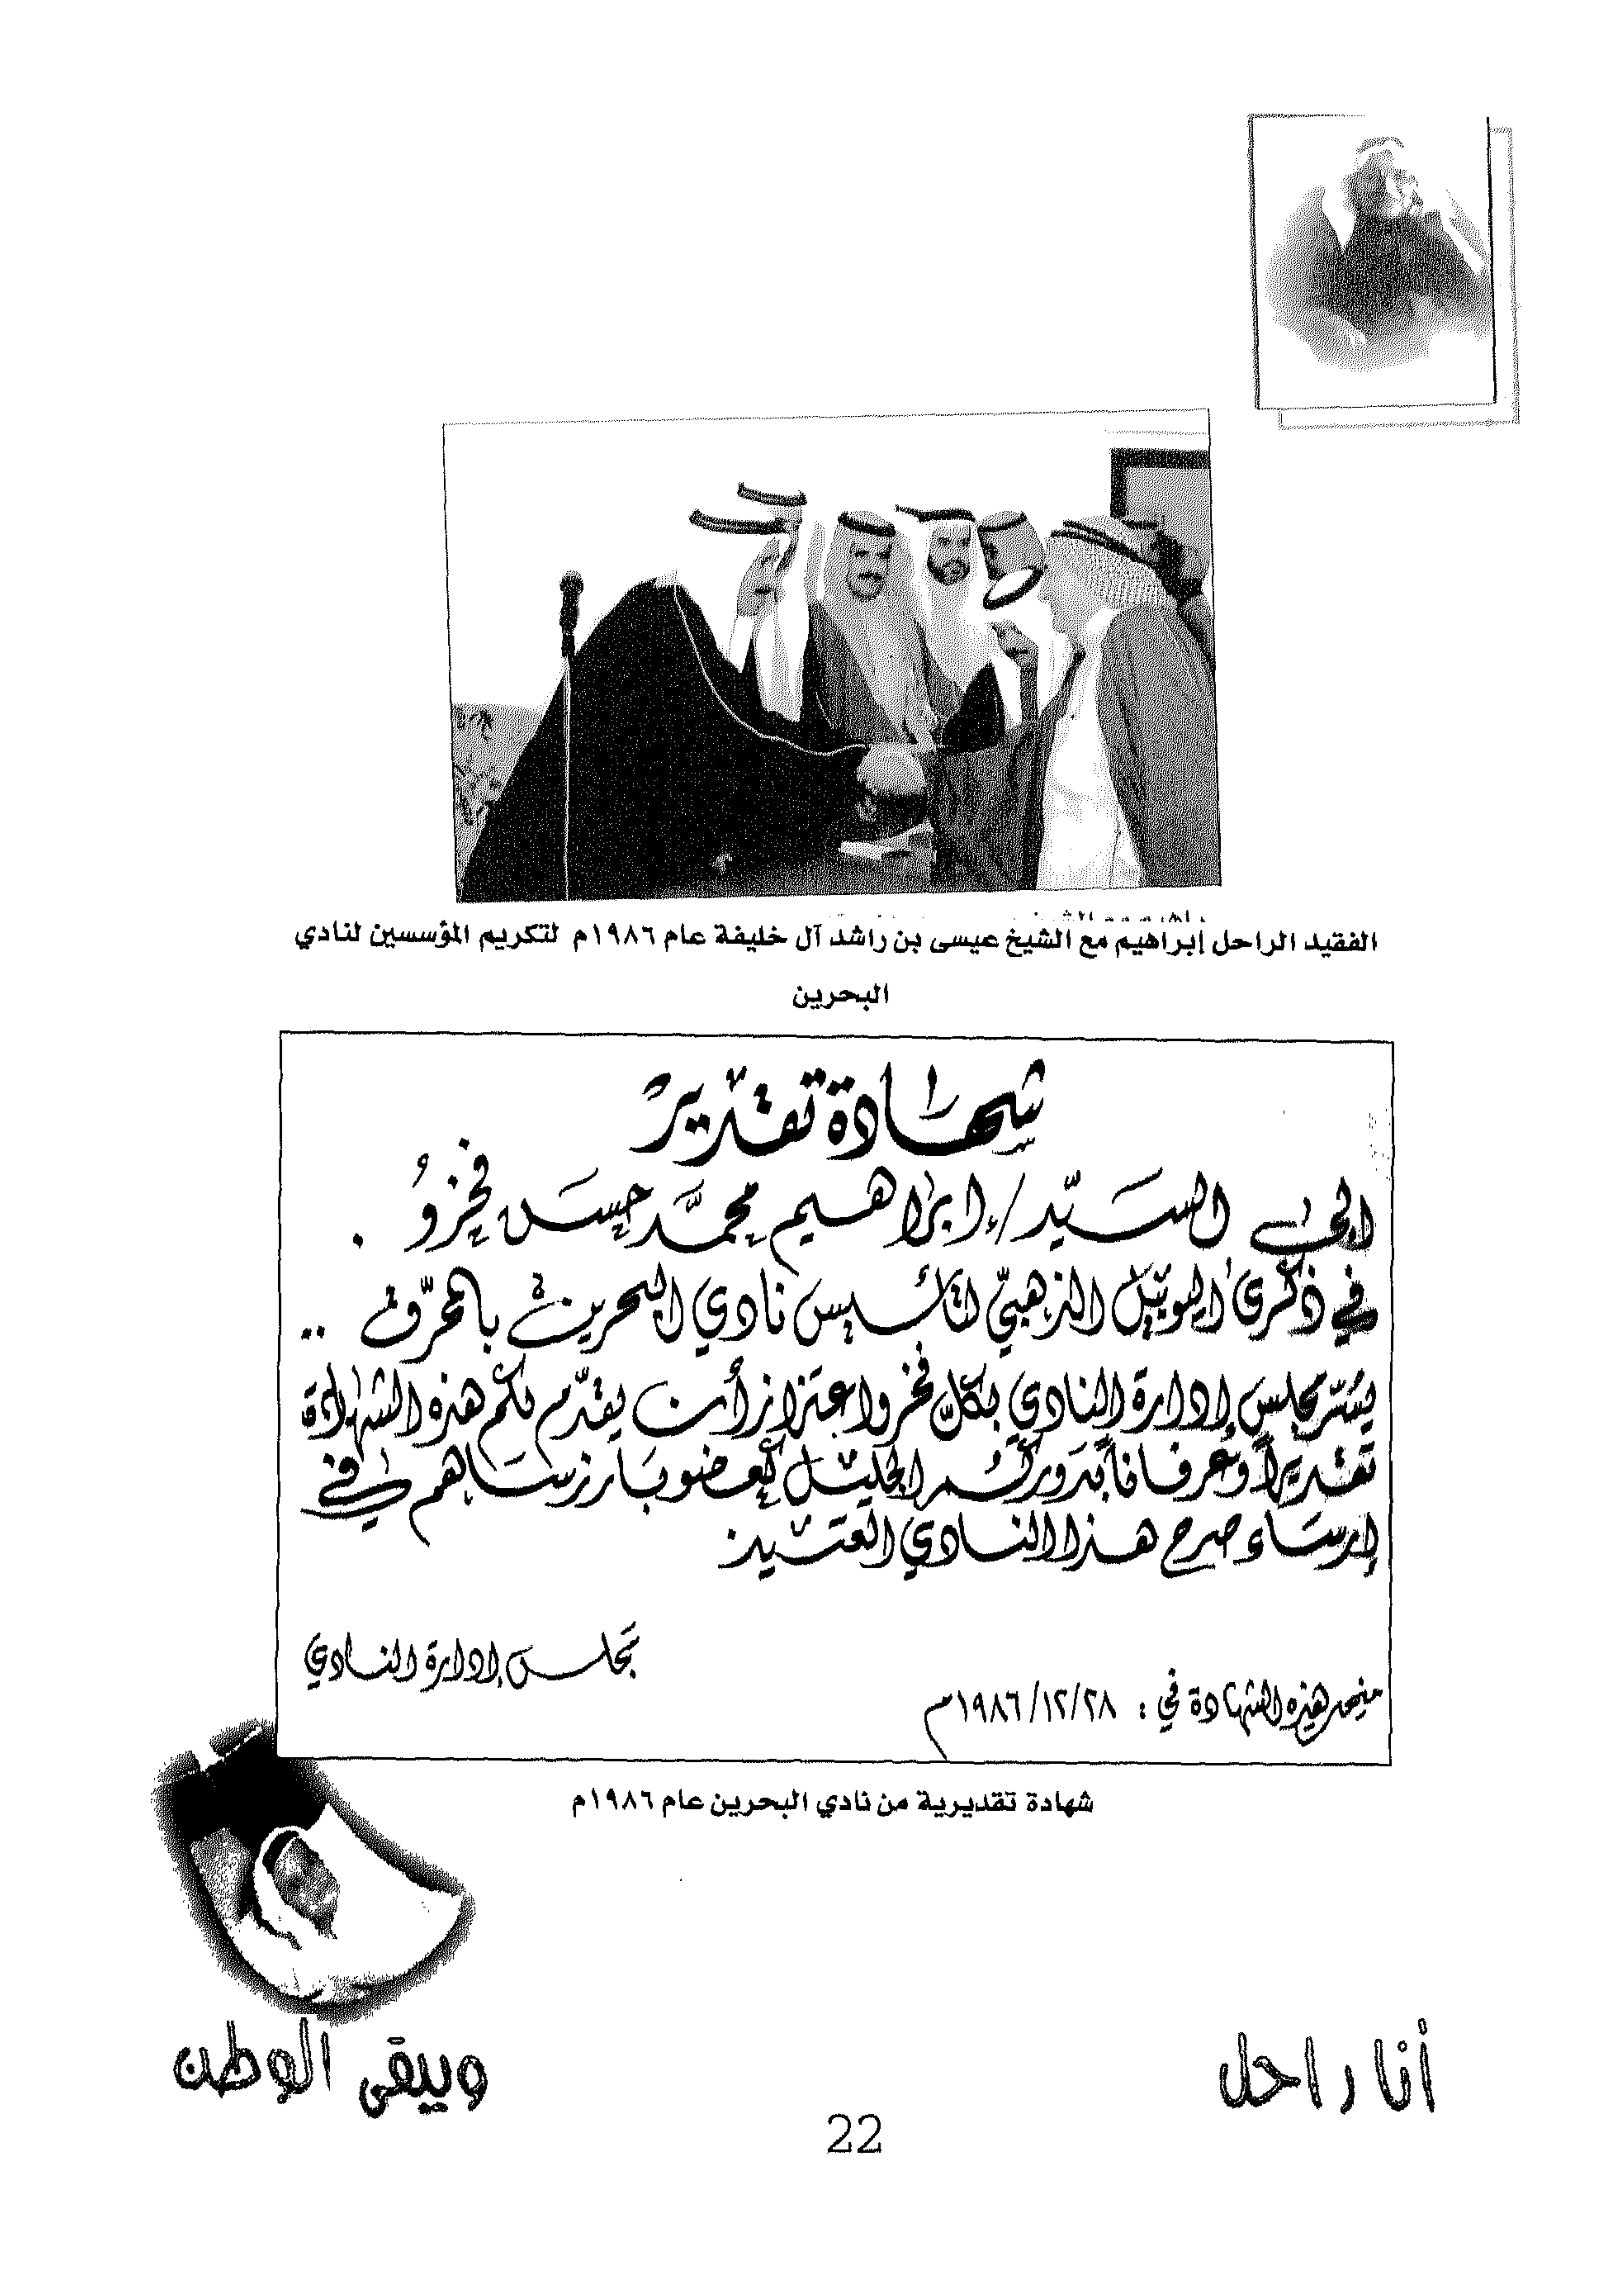 الفقيد الراحل إبراهيم مع الشيخ عيسى بن راشد آل خليفة عام ١٩٨٦م لتكريم المؤسسين لنادي
البحرين
شهادة تقدير
إلى السيّد / إبراهيم محمّد حسن فخرو .
في ذكرى اليوبيل الذهبيّ لتأسيس نادي البحرين بالمحرّق ..
يسّر مجلس إدارة النادي بكلّ فخر واعتزاز أن يقدّم لكم هذه الشهادة
تقديراً وعرفاناً بدوركم الجليل كعضو بارز ساهم في
إرساء صرح هذا النادي العتيد
مجلس إدارة النادي
منحت هذه الشهادة في : ١٩٨٦/١٢/٢٨م
شهادة تقديرية من نادي البحرين عام ١٩٨٦م
أنا راحل
ويبقى الوطن
22